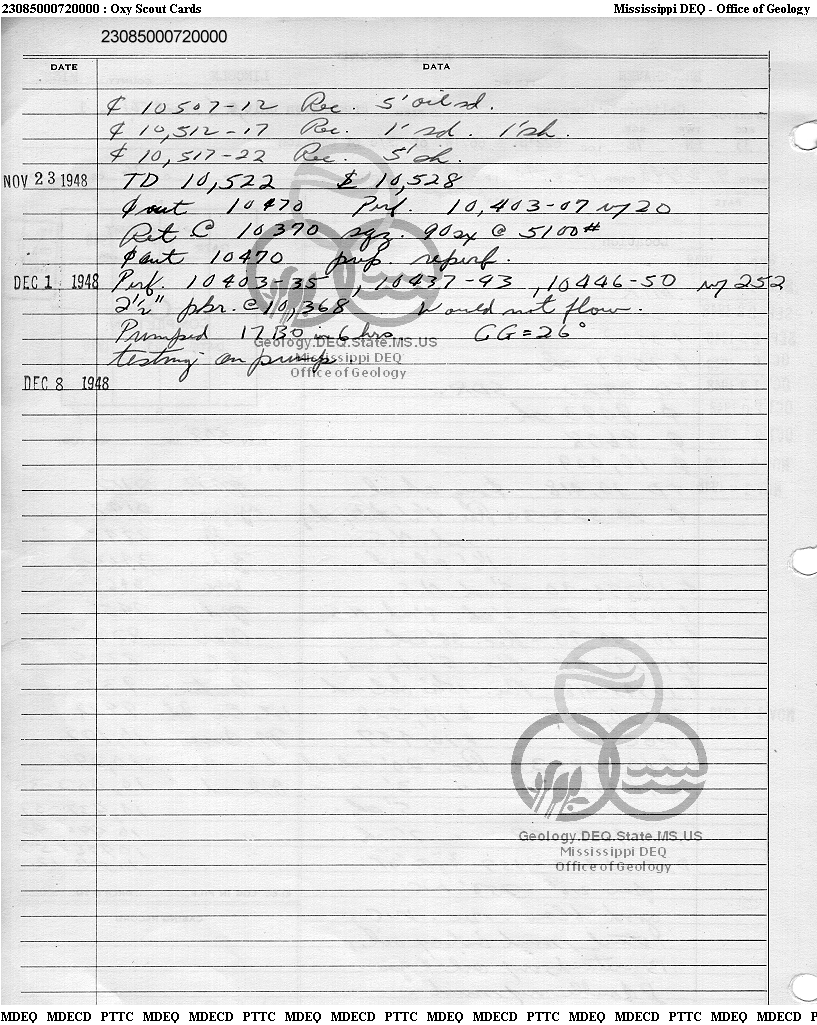 23085000720000 : Oxy Scout Cards Mississippi DEQ - Office of Geology
23085000720000
DATE DATA
₵ 10507-12 Rec. 5' oil sd.
₵ 10,512-17 Rec. 1' sd. 1' sh.
₵ 10,517-22 Rec. 5' sh.
NOV 23 1948 TD 10,522 10,528
out 10470 Perf. 10,403-07 w/20
Ret C 10370 sqz. 90sx @ 5100#
out 10470 prep. reperf.
DEC 1 1948 Perf. 10403-35, 10437-93, 10446-50 w/252
2½" pkr. @ 10,368 Would not flow.
Pumped 17 BO in 6 hrs. GG=26°
testing on pump.
DEC 8 1948
Geology.DEQ.State.MS.US
Mississippi DEQ
Office of Geology
Geology.DEQ.State.MS.US
Mississippi DEQ
Office of Geology
MDEQ MDECD PTTC MDEQ MDECD PTTC MDEQ MDECD PTTC MDEQ MDECD PTTC MDEQ MDECD PTTC MDEQ MDECD P